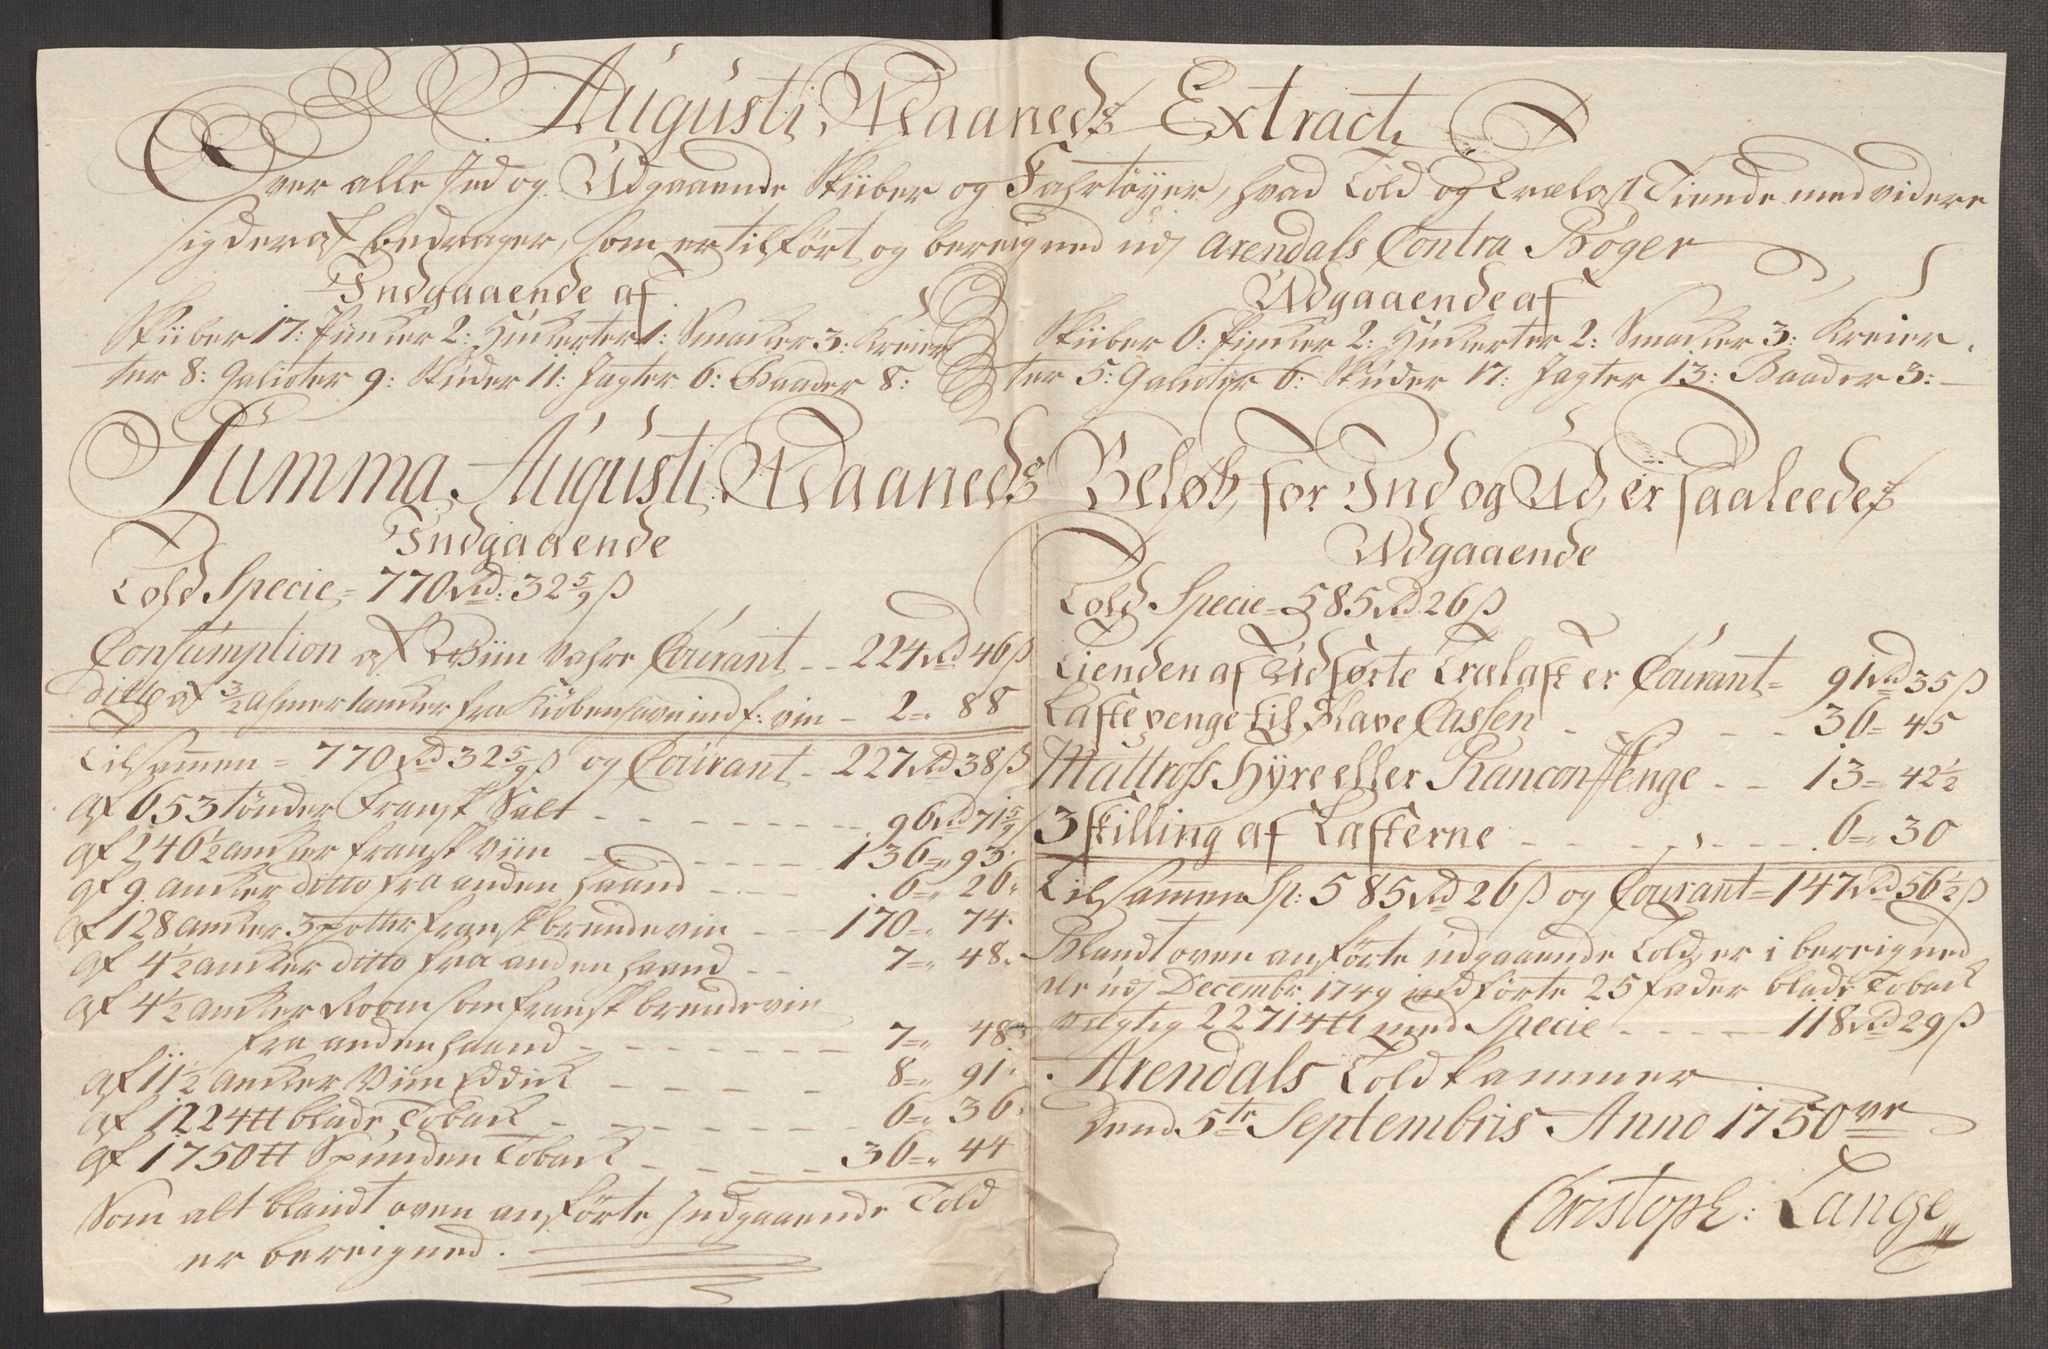 Augusti Maaneds Extract
Over alle Ind og Udgaaende Skiiber og Fahrtöyer, hvad Told og Trælast Tiende med videre
sig deraf bedrager, som er tilfört og bereigned udj Arendals Contra Böger
Indgaaende af
Skiiber 17: Pincker 2: Huckerter 1: Smacker 3: Kreier
ter 8: Galioter 9: Skuder 11: Jagter 6: Baader 8:
Udgaaende af
Skiiber 6: Pincker 2: Huckerter 2: Smacker 3: Kreier
ter 5: Galioter 6: Skuder 17: Jagter 13: Baader 3:
Summa Augusti Maaneds Beløb for Ind og Ud, er saaleedes
Indgaaende
Told Specie = 770 Rd: 32 5/9 ß
Consumption af Viin Vahre Courant - - 224 Rd 46 ß
Ditto af fra Kiöbenhavn indf: vin - 2 = 88
Tilsammen = 770 Rd 32 5/9 ß og Courant - 227 Rd 38 ß
af 653 tönder Fransk Salt - - - 96 Rd 71 5/9 ß
af 246 1/2 ancker fransk Viin - - - 136 = 93
af 9 ancker ditto fra anden haand - - - 6 = 26
af 128 ancker 3 potter fransk brendevin - - 170 = 74
af 4 1/2 ancker ditto fra anden haand - - 7 = 48
af 4 1/2 ancker Room som fransk brendevin
fra anden haand - - - 7 = 48
af 11 1/2 ancker Viin Eddick - - - 8 = 91
af 1224 tt blade Toback - - - 6 = 36
af 1750 tt Spunden Toback - - - 36 = 44
Som alt blandt oven anförte Indgaaende Told
er bereigned.
Udgaaende
Told Specie = 585 Rd 26 ß
Tienden af Udførte Trælast er Courant = 91 Rd 35 ß
Lastepenge til Slave Cassen - - - 36 = 45
Mattross Hyre eller Rancon Penge - - 13 = 42 1/2
3 skilling af Lasterne - - - 6 = 30
Tilsamen Sp: 585 Rd 26 ß og Courant = 147 Rd 56 1/2 ß
Blandt oven anförte udgaaende Told, er i bereigned
de udj Decembr: 1749 indförte 25 fader blade Toback
vegtig 22714 tt med Specie - - - 118 Rd 29 ß
Arendals Toldkammer
dend 5te Septembris Anno 1750
Christoph: Lange